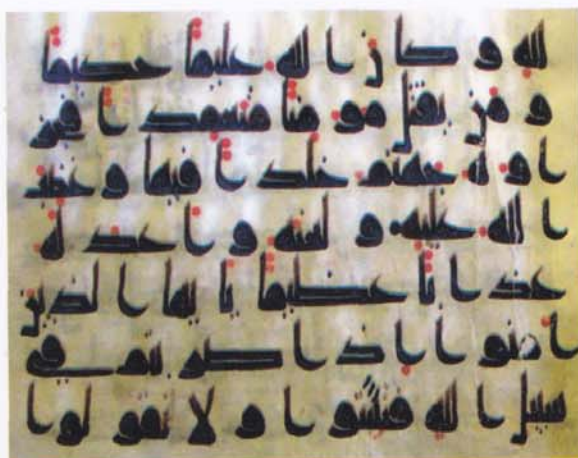 لله و كا ن ا لله عليما حكيما
و من يقتل مو منا متعمد ا فجز
ا وه جهنم خلد ا فيها و غضب
ا لله عليه و لعنه و ا عد له
عذ ا با عظيما يا يها ا لذين
ا منو ا ا ذ ا ضر بتم في
سبيل ا لله فتبينو ا و لا تقو لو ا